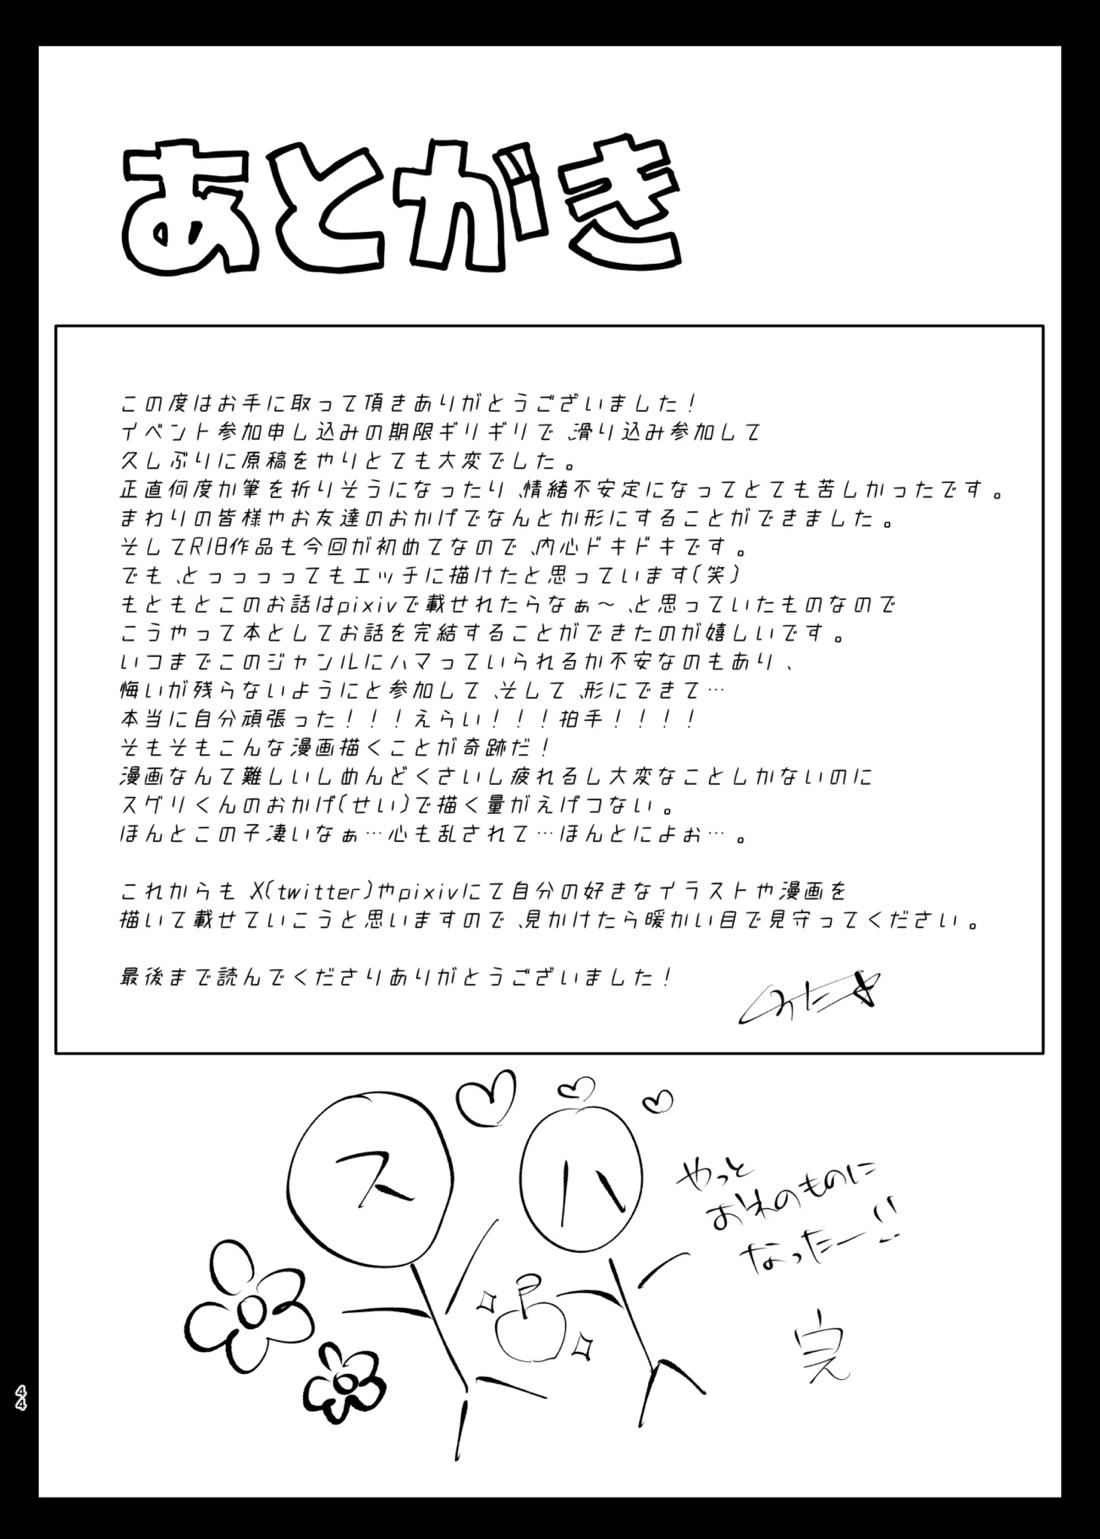 あとがき
この度はお手に取って頂きありがとうございました！
イベント参加申し込みの期限ギリギリで、滑り込み参加して
久しぶりに原稿をやりとても大変でした。
正直何度か筆を折りそうになったり、情緒不安定になってとても苦しかったです。
まわりの皆様やお友達のおかげでなんとか形にすることができました。
そしてR18作品も今回が初めてなので、内心ドキドキです。
でも、とっっっってもエッチに描けたと思っています(笑)
もともとこのお話はpixivで載せれたらなぁ〜、と思っていたものなので
こうやって本としてお話を完結することができたのが嬉しいです。
いつまでこのジャンルにハマっていられるか不安なのもあり、
悔いが残らないようにと参加して、そして、形にできて…
本当に自分頑張った！！！えらい！！！拍手！！！！
そもそもこんな漫画描くことが奇跡だ！
漫画なんて難しいしめんどくさいし疲れるし大変なことしかないのに
スグリくんのおかげ(せい)で描く量がえげつない。
ほんとこの子凄いなぁ…心も乱されて…ほんとによぉ…。
これからも X(twitter)やpixivにて自分の好きなイラストや漫画を
描いて載せていこうと思いますので、見かけたら暖かい目で見守ってください。
最後まで読んでくださりありがとうございました！
ス
ハ
やっと
おれのものに
なったー!!
完
44